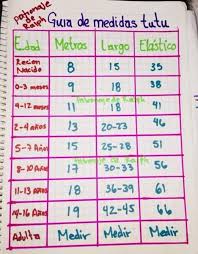 Patronaje de Ralph
Guia de medidas tutu
Edad Metros Largo Elástico
Recien Nacido 8 15 35
0-3 meses 9 18 38
Patronaje de Ralph
9-12 meses 11 18 41
2-4 años 13 20-23 46
5-7 Años 15 25-28 51
Patronaje de Ralph
8-10 Años 17 30-33 56
11-13 Años 18 36-39 61
14-16 Años 19 42-45 66
Adulta Medir Medir Medir